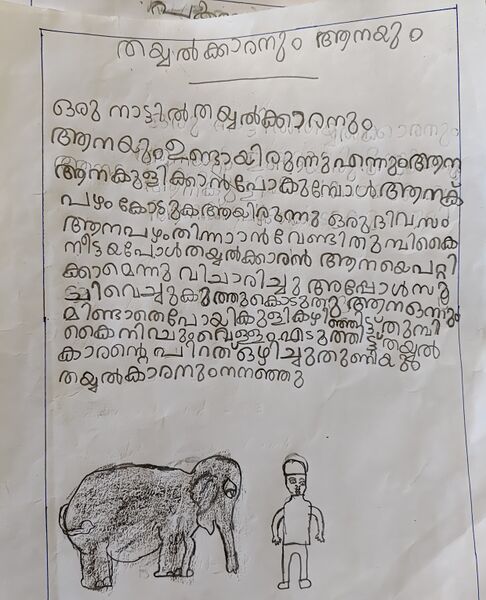 തയ്യൽക്കാരനും ആനയും
ഒരു നാട്ടിൽ തയ്യൽക്കാരനും
ആനയും ഉണ്ടായിരുന്നു എന്നും ആന
ആനകുളിക്കാൻ പോകുമ്പോൾ ആനക്ക്
പഴം കോടുകആയിരുന്നു ഒരു ദിവസം
ആനപഴംതിന്നാൻ വേണ്ടി തുമ്പികൈ
നീട്ടയപോൾ തയ്യൽകാരൻ ആനയെപറ്റി
ക്കാമെന്നു വിചാരിച്ചു അപ്പോൾസൂ
ച്ചിവെച്ചുകുത്തുകൊടുതു ആന ഒന്നും
മിണ്ടാതെപോയികുളികഴിഞ്ഞിട്ട് തുമ്പി
കൈനിച്ചും വെള്ളംഎടുത്തിട്ട് തയ്യൽ
കാരന്റെ പിറത് ഒഴിച്ചുതുണിയും
തയ്യൽകാരനും നനഞ്ഞു